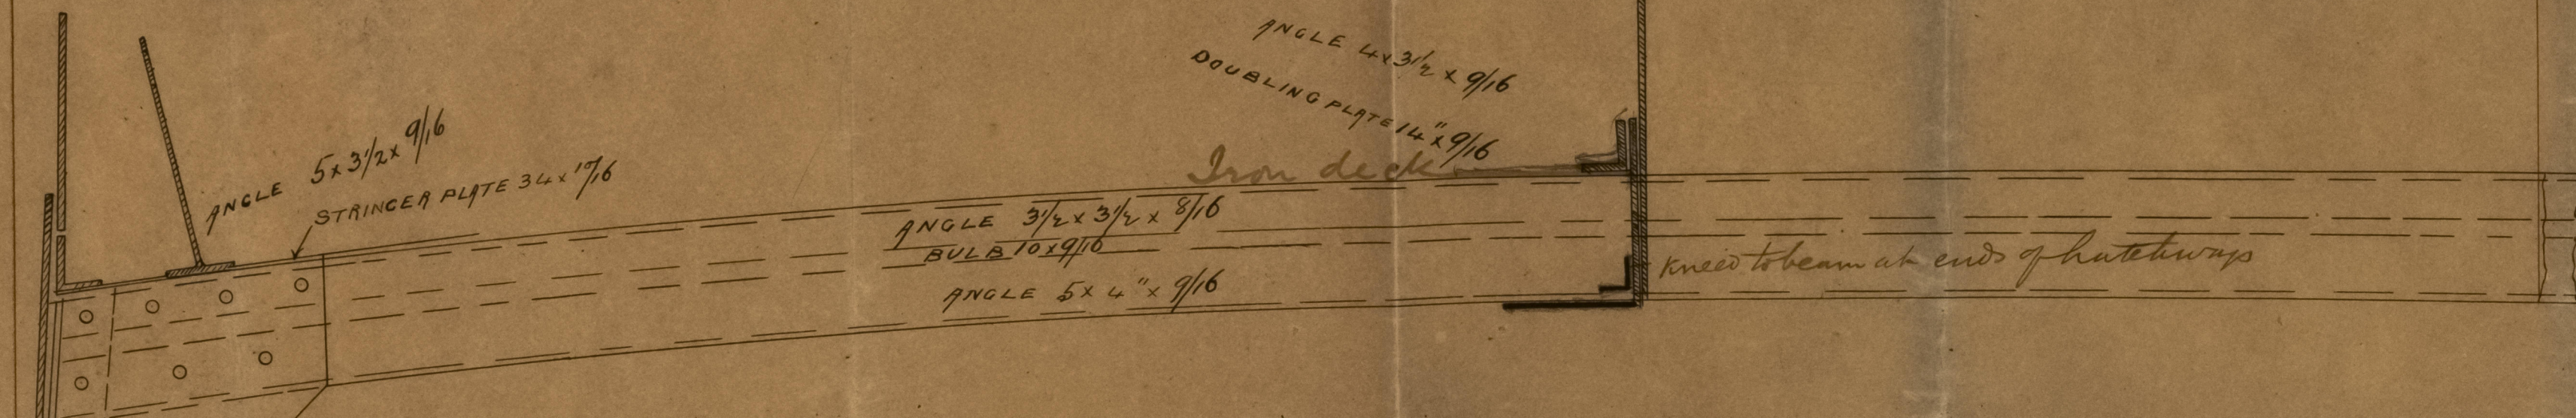 ANGLE 4 x 3 1/2 x 9/16
DOUBLING PLATE 14" x 9/16
ANGLE 5 x 3 1/2 x 9/16
STRINGER PLATE 34 x 10/16
Iron deck
ANGLE 3 1/2 x 3 1/2 x 8/16
BULB 10 x 9/16
ANGLE 5 x 4" x 9/16
Kneed to beam at ends of hatchways